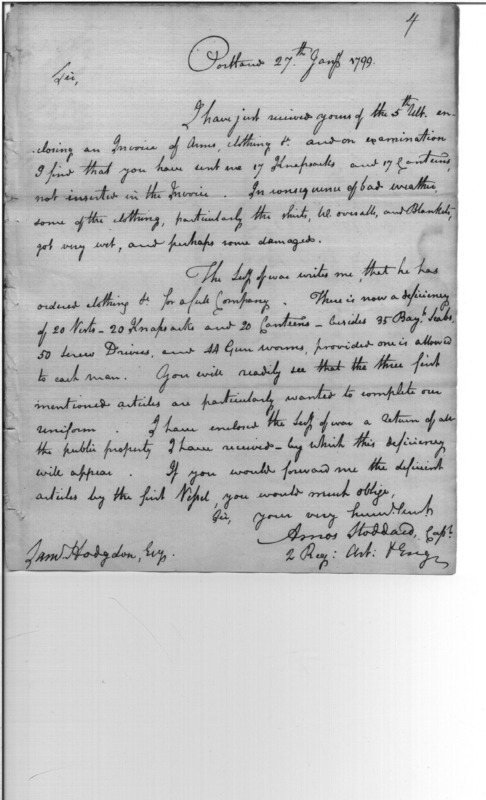 4
Portland 27.th Jany 1799.
Sir,
I have just received yours of the 5th Ult. en-
closing an Invoice of Arms, clothing &c. and on examination
I find that you have sent me 17 Knapsacks and 17 Canteens,
not inserted in the Invoice. In consequence of bad weather,
some of the clothing, particularly the shirts, bl. overalls, and Blankets,
got very wet, and perhaps some damaged.
The Secy of war writes me, that he has
ordered clothing &c. for a full Company. There is now a deficiency
of 20 Vests - 20 Knapsacks and 20 Canteens - besides 35 Bayt. Scabs,
50 Screw Drivers, and 44 Gun worms, provided one is allowed
to each man. You will readily see that the three first
mentioned articles are particularly wanted to complete our
uniform. I have enclosed the Secy of war a return of all
the public property I have received - by which this deficiency
will appear. If you would forward me the deficient
articles by the first Vessel, you would much oblige,
Sir, your very humb. Sevt
Amos Stoddard, Capt.
Saml. Hodgdon, Esq. 2 Reg: Art: & Eng